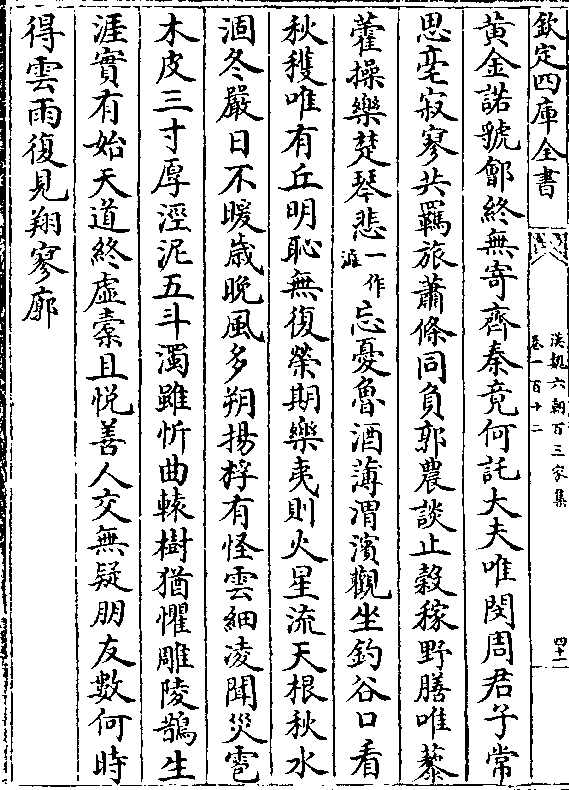 欽定四庫全書
漢魏六朝百三家集
卷一百十二
四十二
黄金諾號鄶終無寄齊秦竟何託大夫唯閔周君子常
思亳寂寥共羈旅蕭條同負郭農談止榖稼野膳唯藜
藿操樂楚琴悲一作滋忘憂魯酒薄渭濱觀坐釣谷口看
秋穫唯有丘明恥無復榮期樂夷則火星流天根秋水
涸冬嚴日不暖歳晚風多朔揚桴有怪雲細凌聞災雹
木皮三寸厚涇泥五斗濁雖忻曲轅樹猶懼雕陵鵲生
涯實有始天道終虛橐且悦善人交無疑朋友數何時
得雲雨復見翔寥廓